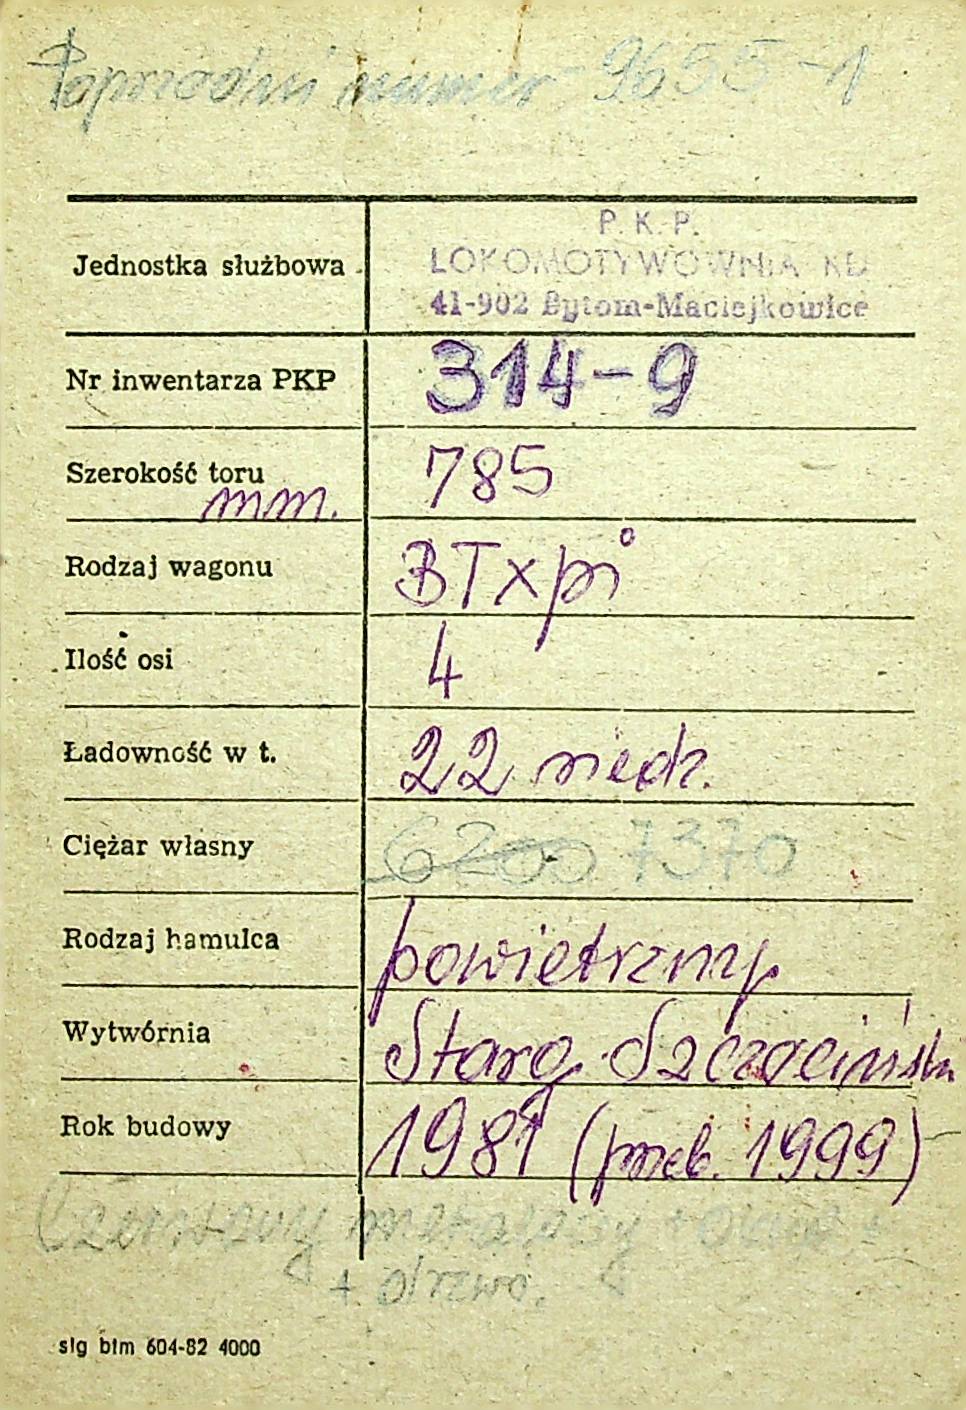 Poprzedni numer 9655-1
P. K. P.
Jednostka służbowa LOKOMOTYWOWNIA KD
41-902 Bytom-Maciejkowice
Nr inwentarza PKP 314-9
Szerokość toru 785
mm.
Rodzaj wagonu BTxpi
Ilość osi 4
Ładowność w t. 22 siedz.
Ciężar własny 6200 7370
Rodzaj hamulca powietrzny
Wytwórnia Starg. Szczeciński
Rok budowy 1981 (przeb. 1999)
Czerwony metalowy +
+ drzwi.
slg btm 604-82 4000